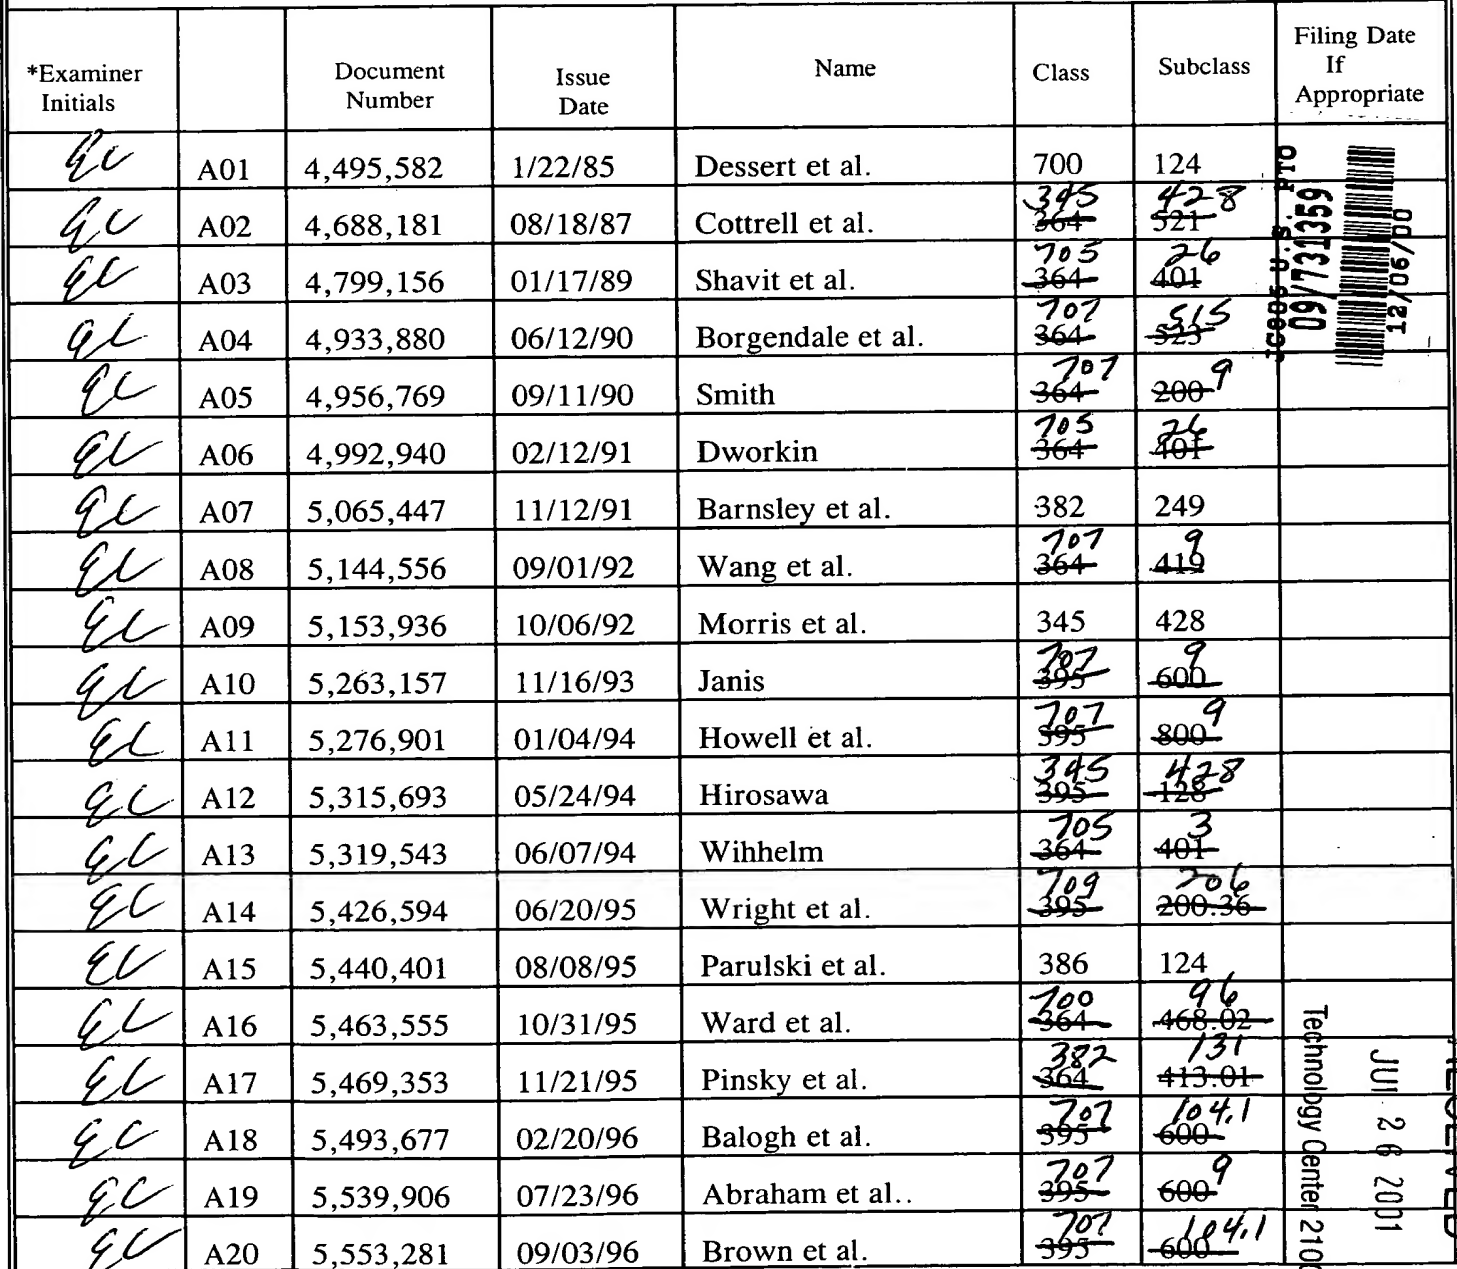 *Examiner Initials | | Document Number | Issue Date | Name | Class | Subclass | Filing Date If Appropriate
EC | A01 | 4,495,582 | 1/22/85 | Dessert et al. | 700 | 124
EC | A02 | 4,688,181 | 08/18/87 | Cottrell et al. | 345 364 | 428 521
EC | A03 | 4,799,156 | 01/17/89 | Shavit et al. | 705 364 | 26 401
EC | A04 | 4,933,880 | 06/12/90 | Borgendale et al. | 707 364 | 515 523
EC | A05 | 4,956,769 | 09/11/90 | Smith | 707 364 | 9 200
EC | A06 | 4,992,940 | 02/12/91 | Dworkin | 705 364 | 26 401
EC | A07 | 5,065,447 | 11/12/91 | Barnsley et al. | 382 | 249
EC | A08 | 5,144,556 | 09/01/92 | Wang et al. | 707 364 | 9 419
EC | A09 | 5,153,936 | 10/06/92 | Morris et al. | 345 | 428
EC | A10 | 5,263,157 | 11/16/93 | Janis | 707 395 | 9 600
EC | A11 | 5,276,901 | 01/04/94 | Howell et al. | 707 395 | 9 800
EC | A12 | 5,315,693 | 05/24/94 | Hirosawa | 345 395 | 428 128
EC | A13 | 5,319,543 | 06/07/94 | Wihhelm | 705 364 | 3 401
EC | A14 | 5,426,594 | 06/20/95 | Wright et al. | 709 395 | 206 200.36
EC | A15 | 5,440,401 | 08/08/95 | Parulski et al. | 386 | 124
EC | A16 | 5,463,555 | 10/31/95 | Ward et al. | 700 364 | 96 468.02
EC | A17 | 5,469,353 | 11/21/95 | Pinsky et al. | 382 364 | 131 413.01
EC | A18 | 5,493,677 | 02/20/96 | Balogh et al. | 707 395 | 104.1 600
EC | A19 | 5,539,906 | 07/23/96 | Abraham et al.. | 707 395 | 9 600
EC | A20 | 5,553,281 | 09/03/96 | Brown et al. | 707 395 | 104.1 600
U.S. PTO
09/731359
12/06/00
JUL 26 2001
Technology Center 2100